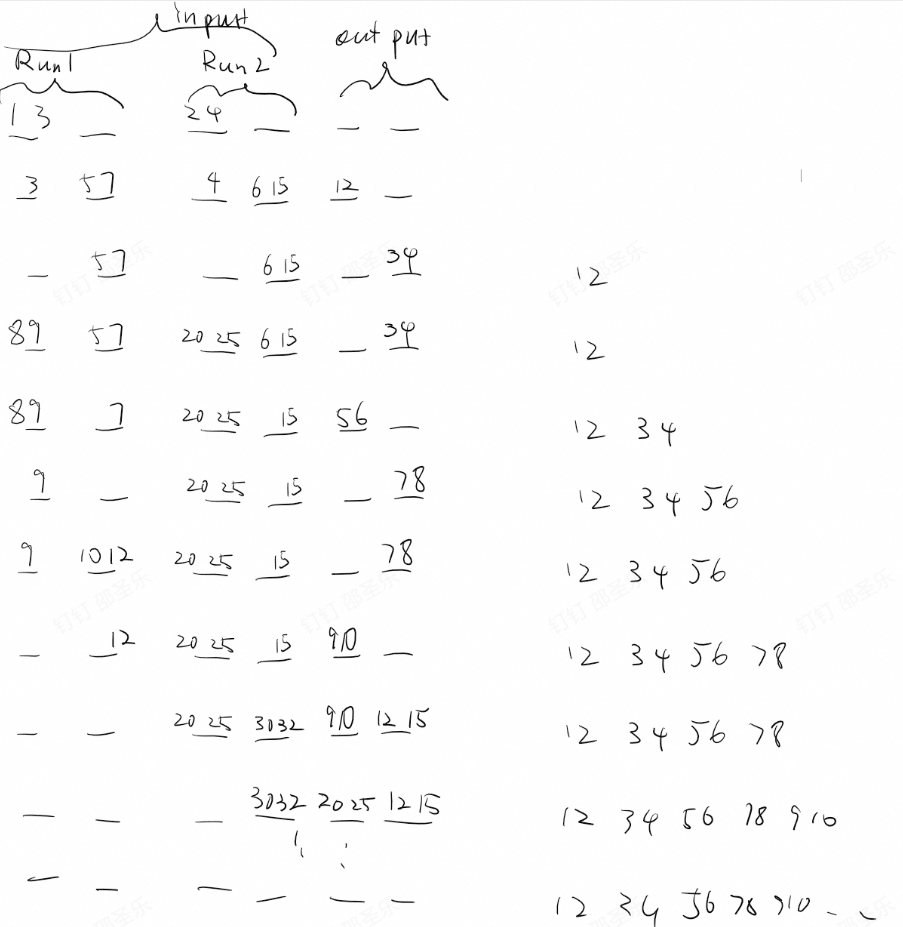 input
Run1 Run2 output
1 3 24
3 57 4 6 15 12
57 6 15 34 12
89 57 20 25 6 15 34 12
89 7 20 25 15 56 12 34
9 20 25 15 78 12 34 56
9 10 12 20 25 15 78 12 34 56
12 20 25 15 910 12 34 56 78
20 25 3032 910 12 15 12 34 56 78
3032 2025 12 15 12 34 56 78 910
12 34 56 78 910
钉钉 邵圣乐
钉钉 邵圣乐
钉钉 邵圣乐
钉钉 邵圣乐
钉钉 邵圣乐
钉钉 邵圣乐
钉钉 邵圣乐
钉钉 邵圣乐